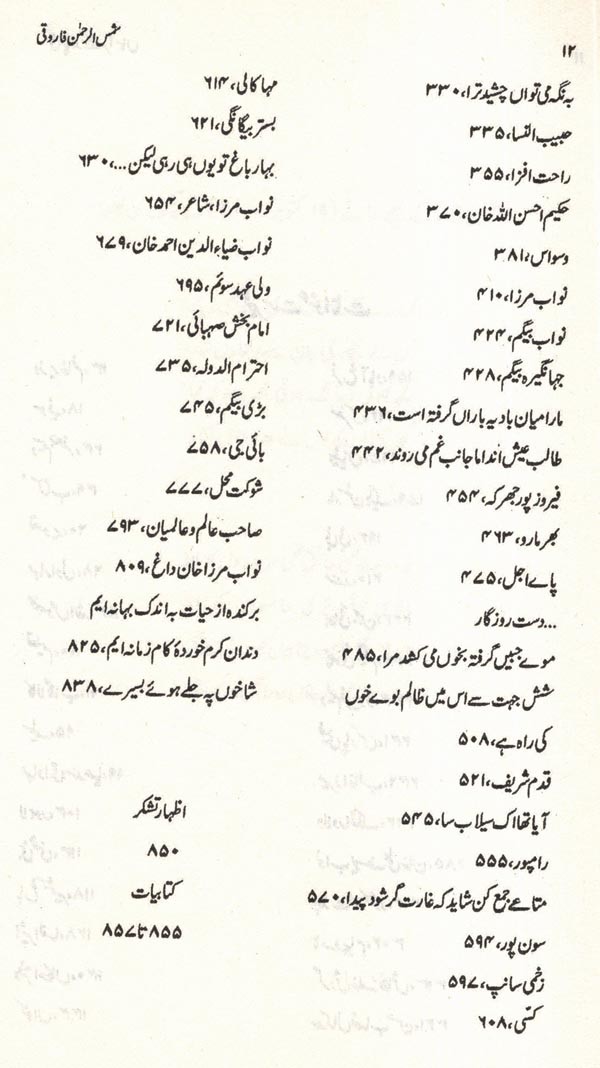 ۱۲
شمس الرحمٰن فاروقی
بہ نگہ می تواں چشید ترا، ۳۳۰
حبیب النسا، ۳۳۵
راحت افزا، ۳۵۵
حکیم احسن اللہ خان، ۳۷۰
وسواس، ۳۸۱
نواب مرزا، ۴۱۰
نواب بیگم، ۴۲۴
جہانگیرہ بیگم، ۴۲۸
مارا میان بادیہ باراں گرفتہ است، ۴۳۶
طالب عیش اند اما جانب غم می روند، ۴۴۲
فیروز پور جھرکہ، ۴۵۴
بھر مارو، ۴۶۳
پاے اجل، ۴۷۵
...دست روزگار
موے جبیں گرفتہ بخوں می کشد مرا، ۴۸۵
شش جہت سے اس میں ظالم بوے خوں
کی راہ ہے، ۵۰۸
قدم شریف، ۵۲۱
آیا تھا اک سیلاب سا، ۵۴۵
رامپور، ۵۵۵
متاعے جمع کن شاید کہ غارت گر شود پیدا، ۵۷۰
سون پور، ۵۹۴
زخمی سانپ، ۵۹۷
کسّی، ۶۰۸
مہا کالی، ۶۱۴
بستر بیگانگی، ۶۲۱
بہار باغ تو یوں ہی رہی لیکن...، ۶۳۰
نواب مرزا، شاعر، ۶۵۴
نواب ضیاء الدین احمد خان، ۶۷۹
ولی عہد سوئم، ۶۹۵
امام بخش صہبائی، ۷۲۱
احترام الدولہ، ۷۳۵
بڑی بیگم، ۷۴۵
بائی جی، ۷۵۸
شوکت محل، ۷۷۷
صاحب عالم و عالمیان، ۷۹۳
نواب مرزا خان داغ، ۸۰۹
برکندہ از حیات بہ اندک بہانہ ایم
دندان کرم خوردۂ کام زمانہ ایم، ۸۲۵
شاخوں پہ جلے ہوئے بسیرے، ۸۳۸
اظہار تشکر
۸۵۰
کتابیات
۸۵۵ تا ۸۵۷